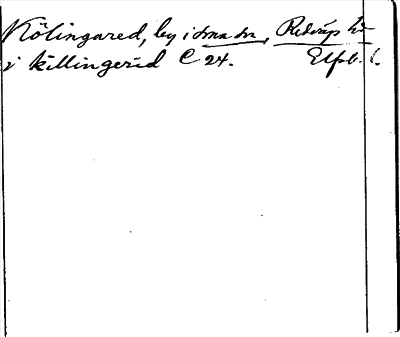 Kölingared, by i dna dn, Redvägs hd
i killingerid C 24. Elfsb. l.